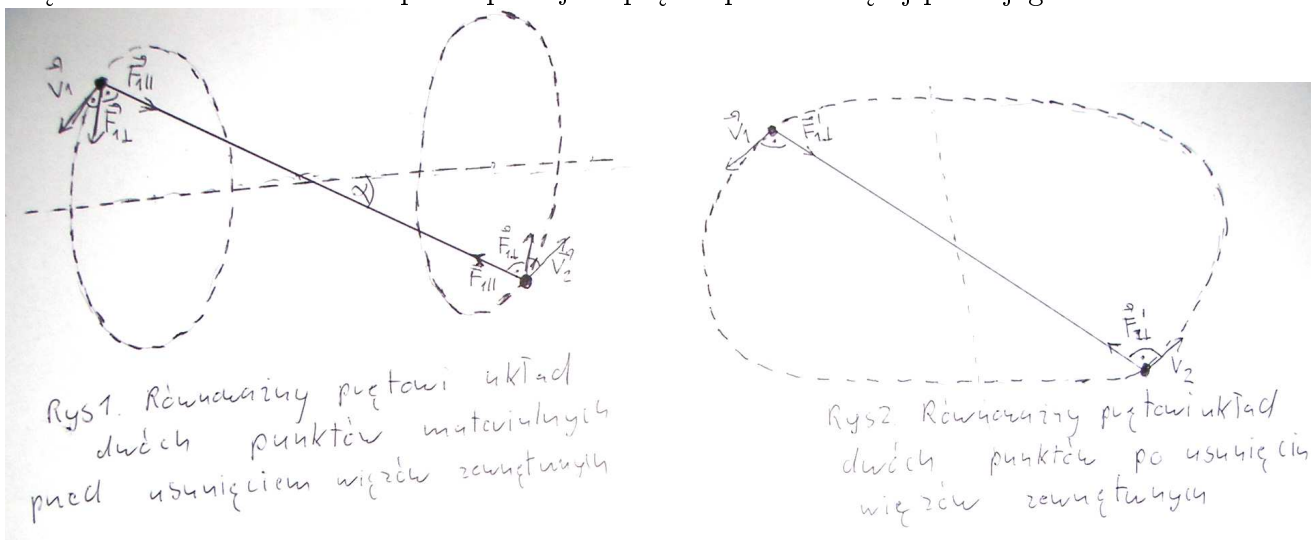 V₁
F₁∥
F₁⊥
α
F₁⊥
F₁∥
V₂
Rys 1. Równoważny prętowi układ
dwóch punktów materialnych
przed usunięciem więzów zewnętrznych
V₁
F'₁⊥
F'₂⊥
V₂
Rys 2 Równoważny prętowi układ
dwóch punktów po usunięciu
więzów zewnętrznych